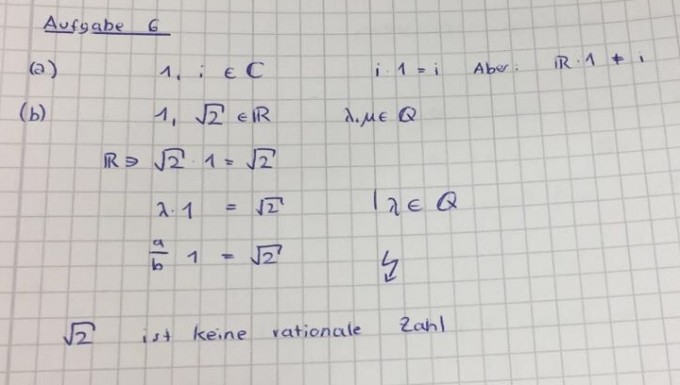 Aufgabe 6
(a) 1, i ∈ C i · 1 = i Aber: ℝ · 1 ≠ i
(b) 1, √2 ∈ ℝ λ, μ ∈ ℚ
ℝ ∋ √2 · 1 = √2
λ · 1 = √2 | λ ∈ ℚ
a/b 1 = √2 ↯
√2 ist keine rationale Zahl